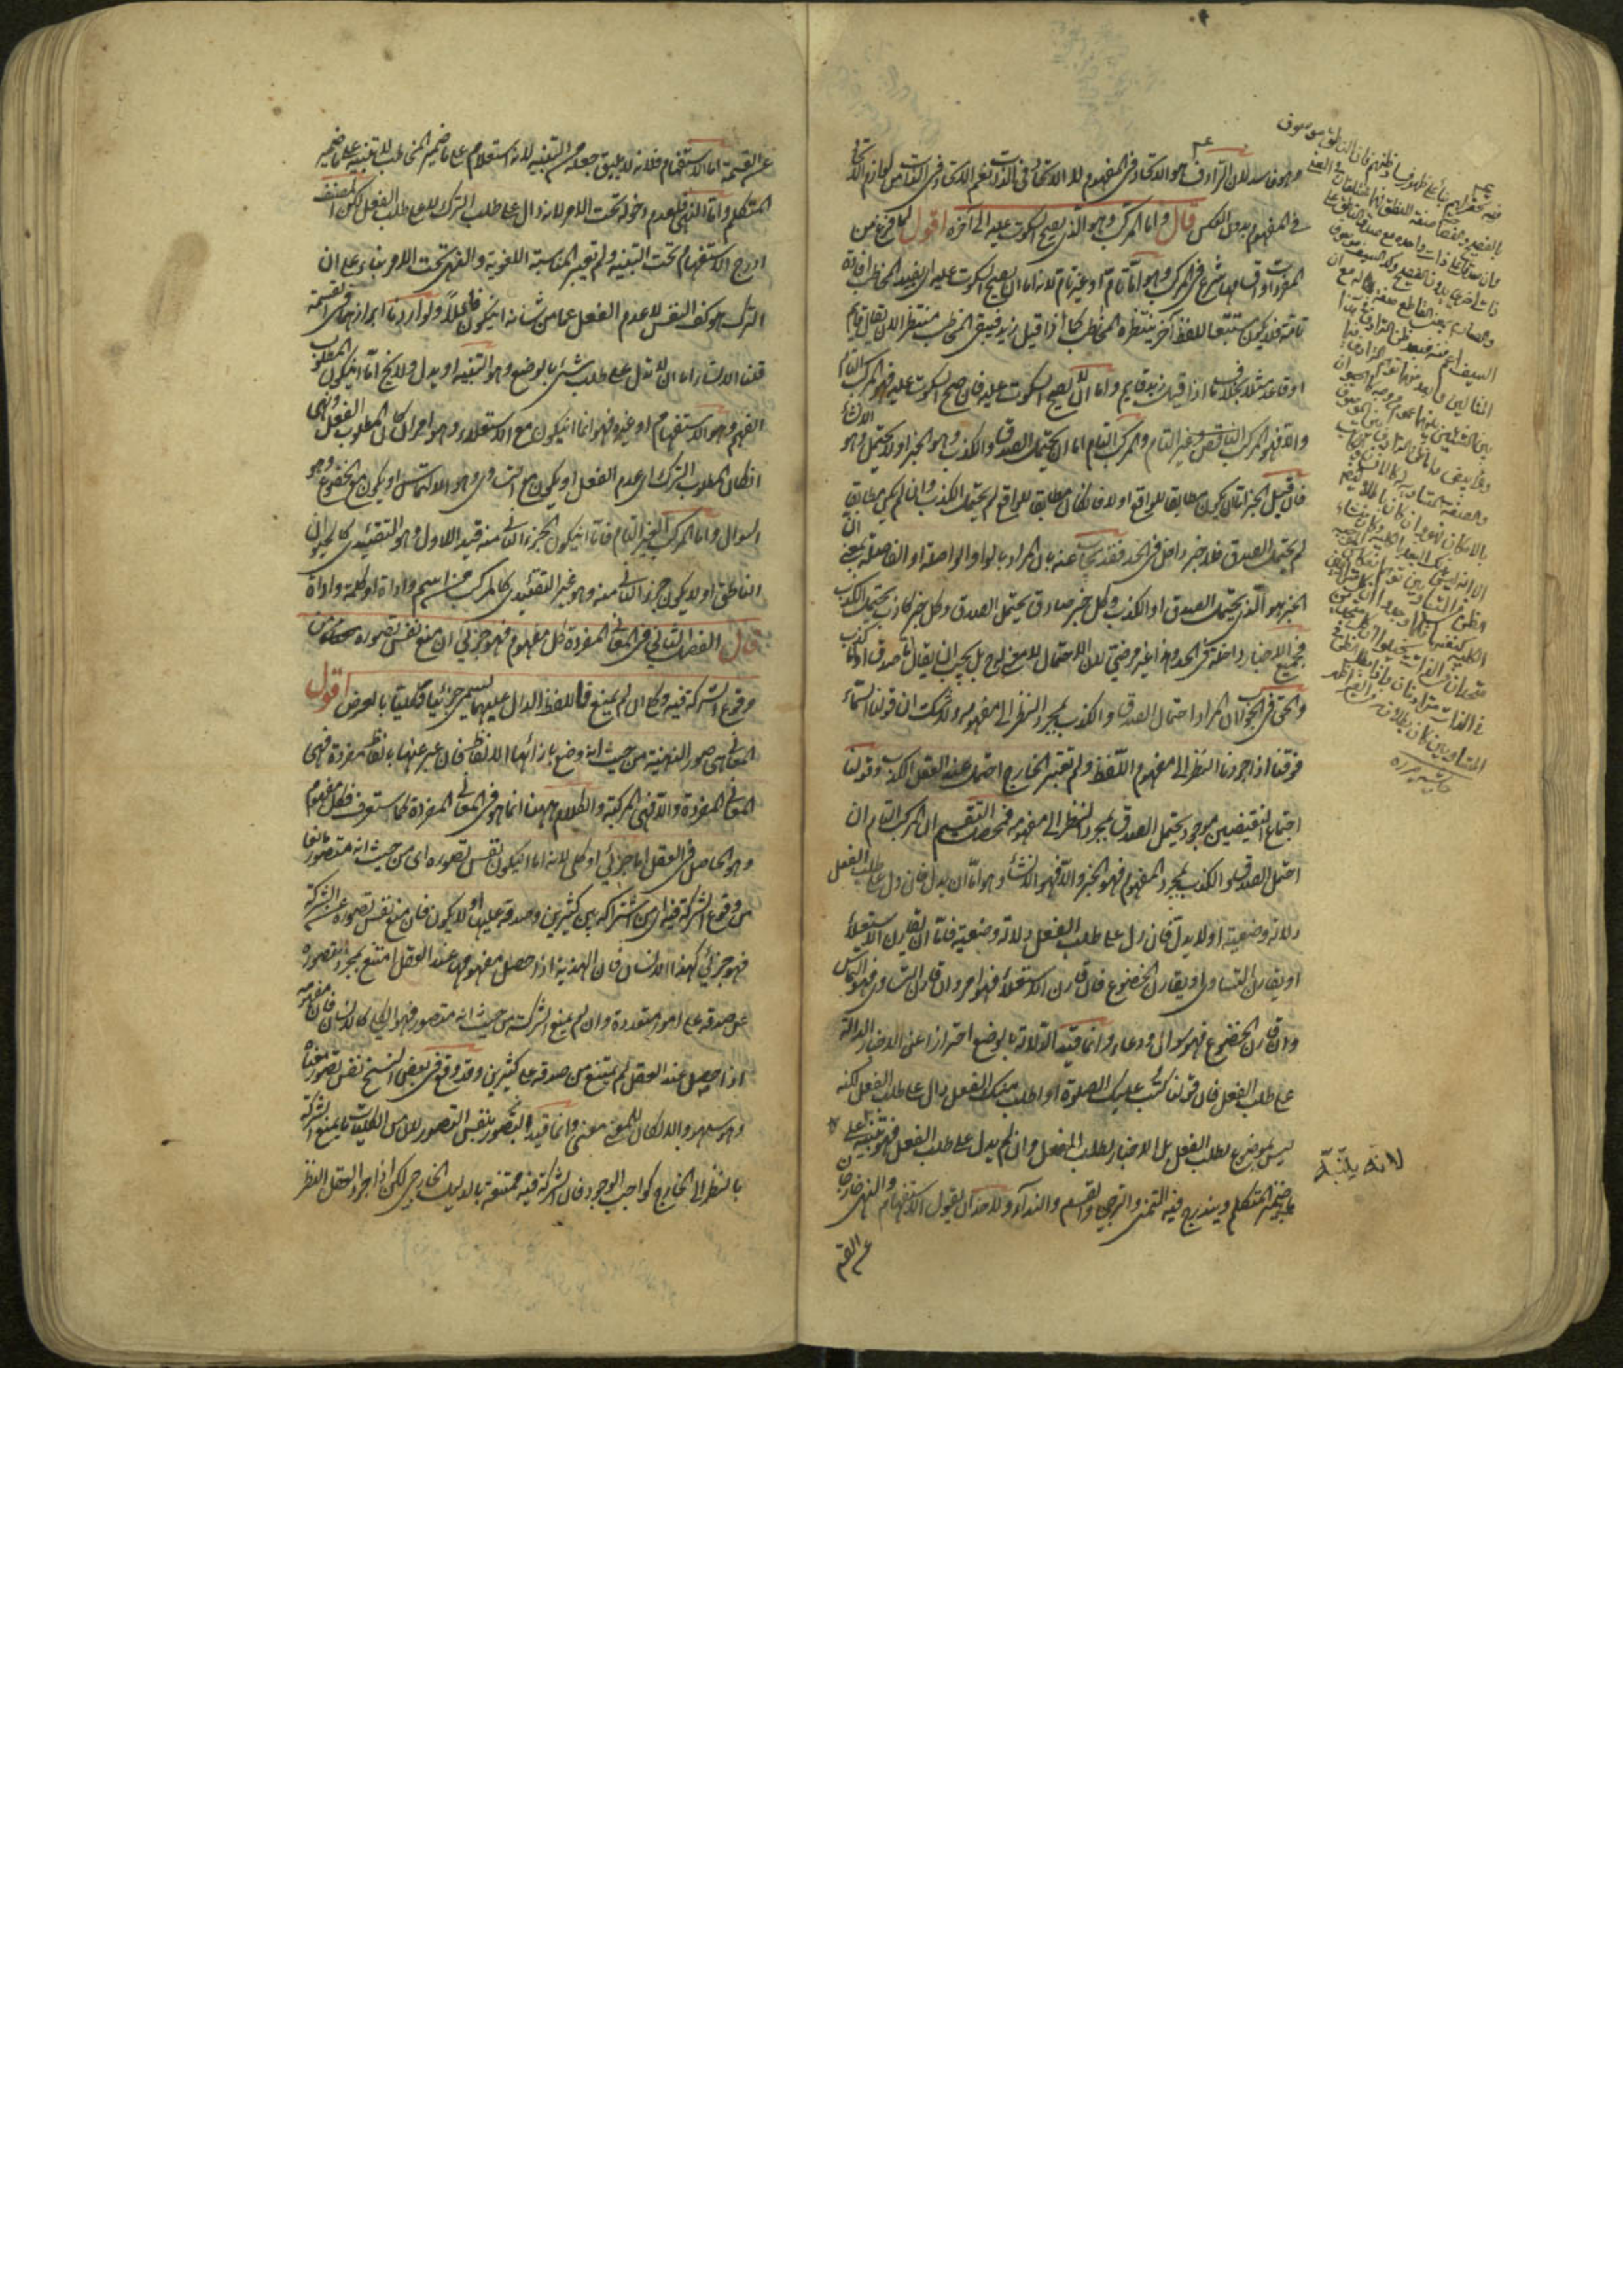 وهو فاسد لان الترادف هو الاتحاد في المفهوم لا الاتحاد في الذات نعم الاتحاد في الذات من لوازم الاتحاد
في المفهوم بدون العكس قال واما المركب وهو الذي يصح السكوت عليه الى آخره اقول لما فرغ من
المفرد واقسامه شرع في المركب وهو اما تام او غير تام لانه اما ان يصح السكوت عليه اى يفيد المخاطب افادة
تامة فلا يكون مستتبعا للفظ آخر ينتظره المخاطب كما اذا قيل زيد فيبقى المخاطب منتظرا لان يقال قايم
او قاعد مثلا بخلاف ما اذا قيل زيد قايم واما ان لا يصح السكوت عليه فان صح السكوت عليه فهو المركب التام
والا فهو المركب الناقص وغير التام والمركب التام اما ان يحتمل الصدق والكذب وهو الخبر او لا يحتمل وهو الانشاء
فان قيل الخبر اما ان يكون مطابقا للواقع او لا فان كان مطابقا للواقع لم يحتمل الكذب وان لم يكن مطابقا
لم يحتمل الصدق فلا خبر داخل في الحد فقد يجاب عنه بان المراد بالواو الواصلة او الفاصلة بمعنى ان
الخبر هو الذي يحتمل الصدق او الكذب وكل خبر صادق يحتمل الصدق وكل خبر كاذب يحتمل الكذب
فجميع الاخبار داخلة في الحد وهذا غير مرضي لان الاحتمال لا معنى له ح بل يجب ان يقال ما صدق او كذب
والحق في الجواب ان المراد احتمال الصدق والكذب بمجرد النظر الى مفهومه ولا شك ان قولنا السماء
فوقنا اذا جردنا النظر الى مفهوم اللفظ ولم نعتبر الخارج احتمل عند العقل الكذب وقولنا
اجتماع النقيضين موجود يحتمل الصدق بمجرد النظر الى مفهومه فمحصل التقسيم ان المركب التام ان
احتمل الصدق والكذب بمجرد المفهوم فهو الخبر والا فهو الانشاء وهو اما ان يدل فان دل على طلب الفعل
دلالة وضعية او لا يدل فان دل على طلب الفعل دلالة وضعية فاما ان يقارن الاستعلاء
او يقارن التساوي او يقارن الخضوع فان قارن الاستعلاء فهو امر وان قارن التساوي فهو التماس
وان قارن الخضوع فهو سوال ودعاء وانما قيد الدلالة بالوضع احترازا عن الاخبار الدالة
على طلب الفعل فان قولنا كتب عليك الصلوة او اطلب منك الفعل دال على طلب الفعل لكنه
ليس بموضوع لطلب الفعل بل الاخبار لطلب الفعل وان لم يدل على طلب الفعل فهو تنبيه
على ضمير المتكلم ويندرج فيه التمني والترجي والقسم والنداء ولاحد ان يقول الاستفهام والنهي خارجان
عن القسمة
لانه ينبه
عن القسمة اما الاستفهام فلانه لا يليق جعله من التنبيه لانه استعلام على ما في ضمير المخاطب لا تنبيه على ما في ضمير
المتكلم واما النهي فلعدم دخوله تحت الامر لانه دال على طلب الترك لا على طلب الفعل لكن المصنف
ادرج الاستفهام تحت التنبيه ولم تعتبر المناسبة اللغوية والنهي تحت الامر بناء على ان
الترك هو كف النفس لا عدم الفعل عما من شانه ان يكون فاعلا ولو اردنا ايرادهما في القسمة
قلنا الانشاء اما ان لا تدل على طلب شئ بالوضع وهو التنبيه او يدل ولا يخ اما ان يكون المطلوب
الفهم وهو الاستفهام او غيره فهو اما ان يكون مع الاستعلاء وهو امر ان كان المطلوب الفعل ونهي
ان كان المطلوب الترك اى عدم الفعل او يكون مع التساوي وهو الالتماس او يكون مع الخضوع وهو
السوال واما المركب الغير التام فاما ان يكون الجزء الثاني منه قيد الاول وهو التقييدى كالحيوان
الناطق او لا يكون جزء الثاني منه وهو غير التقييدى كالمركب من اسم واداة او كلمة واداة
قال الفصل الثاني في المعاني المفردة كل مفهوم فهو جزئي ان منع نفس تصوره من
وقوع الشركة فيه وكلي ان لم يمنع واللفظ الدال عليهما يسمى جزئيا وكليا بالعرض اقول
المعاني هي الصور الذهنية من حيث انه وضع بازائها الالفاظ فان عبر عنها بالفاظ مفردة فهي
المعاني المفردة والا فهي المركبة والكلام ههنا انما هو في المعاني المفردة كما ستعرف فكل مفهوم
وهو الحاصل في العقل اما جزئي او كلي لانه اما ان يكون نفس تصوره اى من حيث انه متصور مانعا
من وقوع الشركة فيه اى من اشتراكه بين كثيرين وصدقه عليها او لا يكون فان منع نفس تصوره عن الشركة
فهو جزئي كهذا الانسان فان الهذية اذا حصل مفهومها عند العقل امتنع بمجرد تصوره
عن صدقه على امور متعددة وان لم يمنع الشركة من حيث انه متصور فهو الكلي كالانسان فان مفهومه
اذا حصل عند العقل لم يمتنع من صدقه على كثيرين وقد وقع في بعض النسخ نفس تصور معناه
وهو سهو والا لكان للمعنى معنى وانما قيد التصور بنفس التصور لان من الكليات ما يمنع الشركة
بالنظر الى الخارج كواجب الوجود فان الشركة فيه ممتنعة بالدليل الخارجي لكن اذا جرد العقل النظر